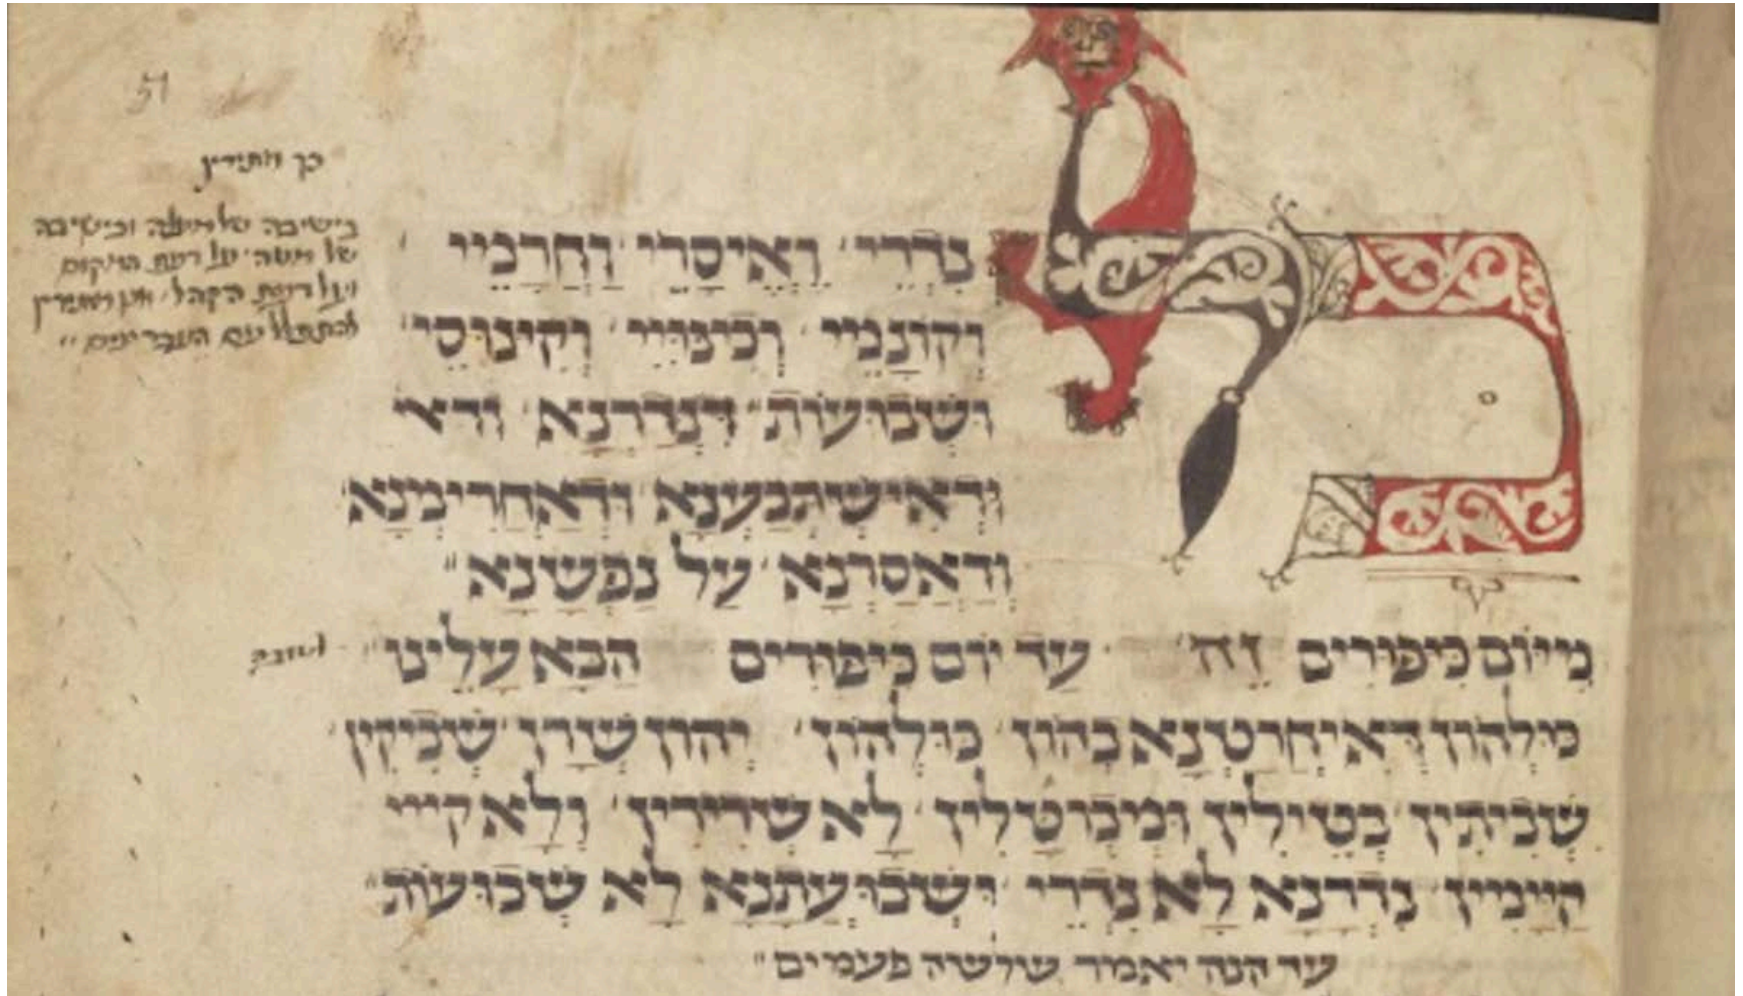 כך מתירין
בישיבה של מעלה ובישיבה
של מטה על דעת המקום
ועל דעת הקהל אנו מתירין
להתפלל עם העבריינים
כל
נִדְרֵי וֶאֱיסָרֵי וַחֲרָמֵיי
וְקוֹנָמֵיי וְכִינּוּיֵי וְקִינוּסֵי
וּשְׁבוּעוֹת דִּנְדַרְנָא ודא
וּדְאִישְׁתְּבַעְנָא וּדְאַחֲרִימְנָא
וְדַאֲסַרְנָא עַל נַפְשָׁנָא
מִיּוֹם כִּיפּוּרִים זֶה עַד יוֹם כִּיפּוּרִים הַבָּא עָלֵינוּ לטובה
כּוּלְּהוֹן דְּאִיחֲרַטְנָא בְהוֹן כּוּלְּהוֹן יְהוֹן שְׁרָן שְׁבִיקִין
שְׁבִיתִין בְּטֵילִין וּמְבוּטָלִין לָא שְׁרִירִין וְלָא קייי
קַיָּימִין נִדְרָנָא לָא נִדְרֵי וּשְׁבוּעָתָנָא לָא שְׁבוּעוֹת
עד הנה יאמר שלשה פעמים